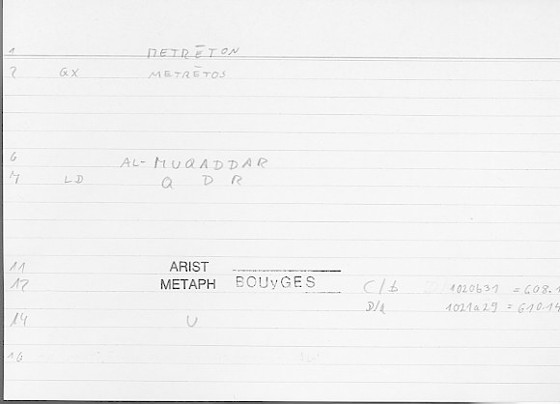 1 METRĒTON
2 GX METRĒTOS
6 AL-MUQADDAR
7 LD Q D R
11 ARIST
12 METAPH BOUyGES C/b 1020b31 = 608.1
D/l 1021a29 = 610.14
14 U
16